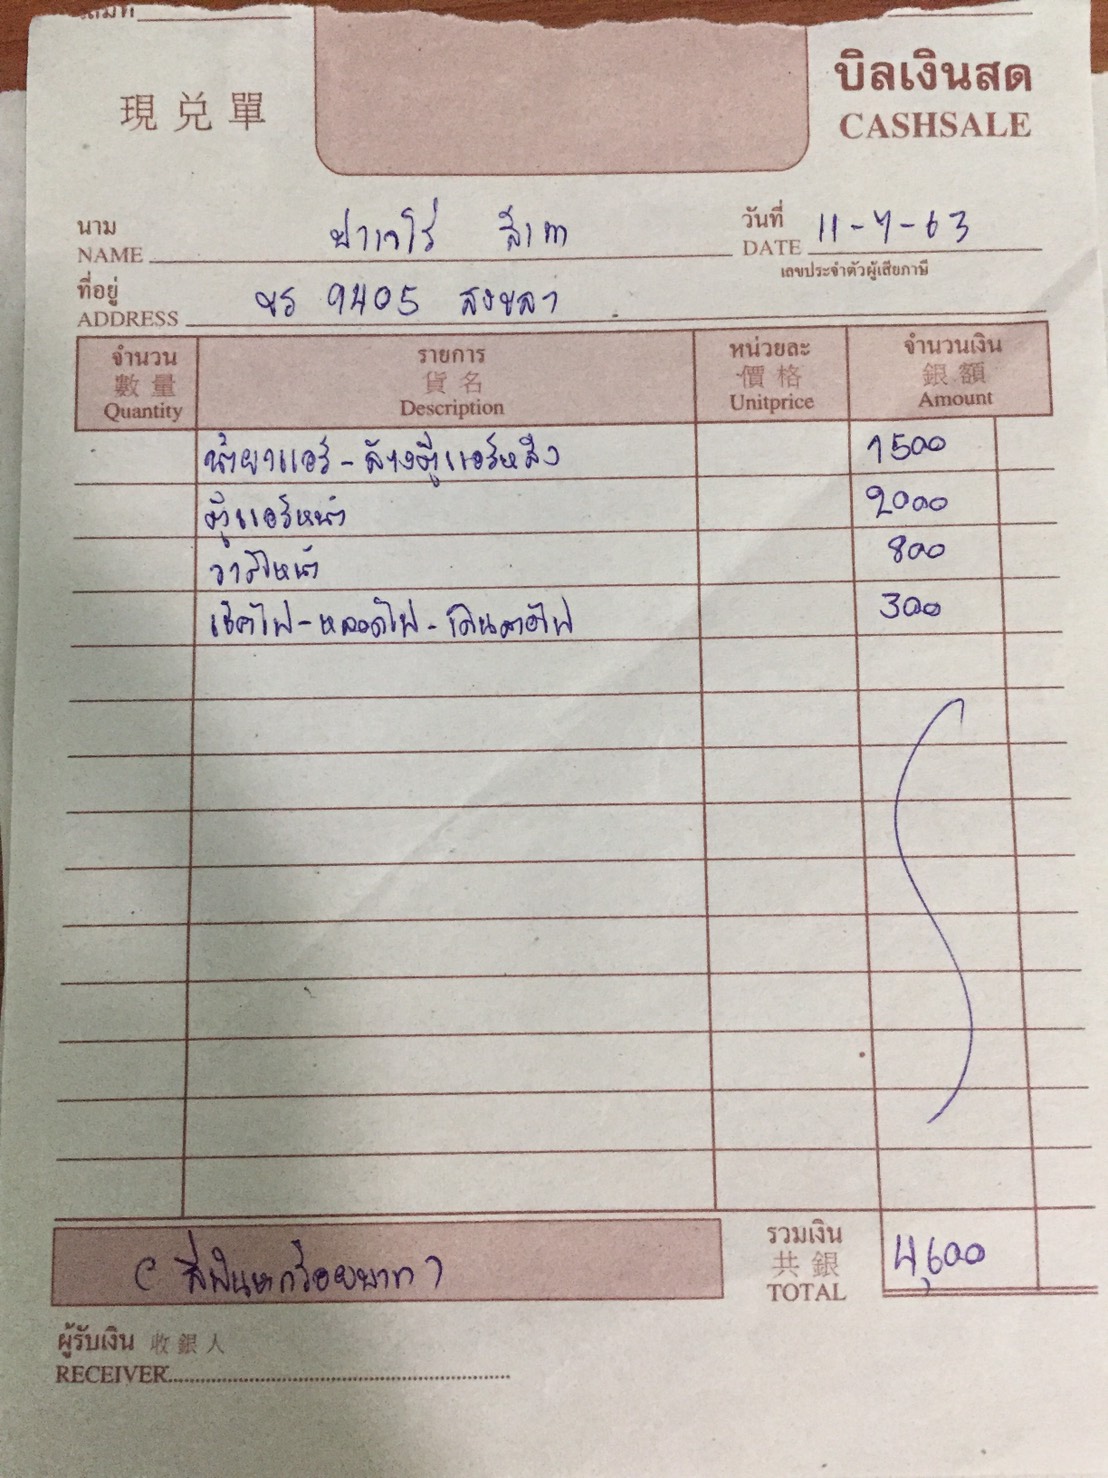 บิลเงินสด
現兑單
CASHSALE
นาม
NAME ปาเจโร่ สีเทา
วันที่
DATE 11-7-63
เลขประจำตัวผู้เสียภาษี
ที่อยู่
ADDRESS ขร 9405 สงขลา
จำนวน รายการ หน่วยละ จำนวนเงิน
數量 貨名 價格 銀額
Quantity Description Unitprice Amount
น้ำยาแอร์ - ล้างตู้แอร์หลัง 1500
ตู้แอร์หน้า 2000
วาล์วหน้า 800
เช็คไฟ - หลอดไฟ - เดินสายไฟ 300
(สี่พันหกร้อยบาท)
รวมเงิน
共銀
TOTAL 4,600
ผู้รับเงิน 收銀人
RECEIVER